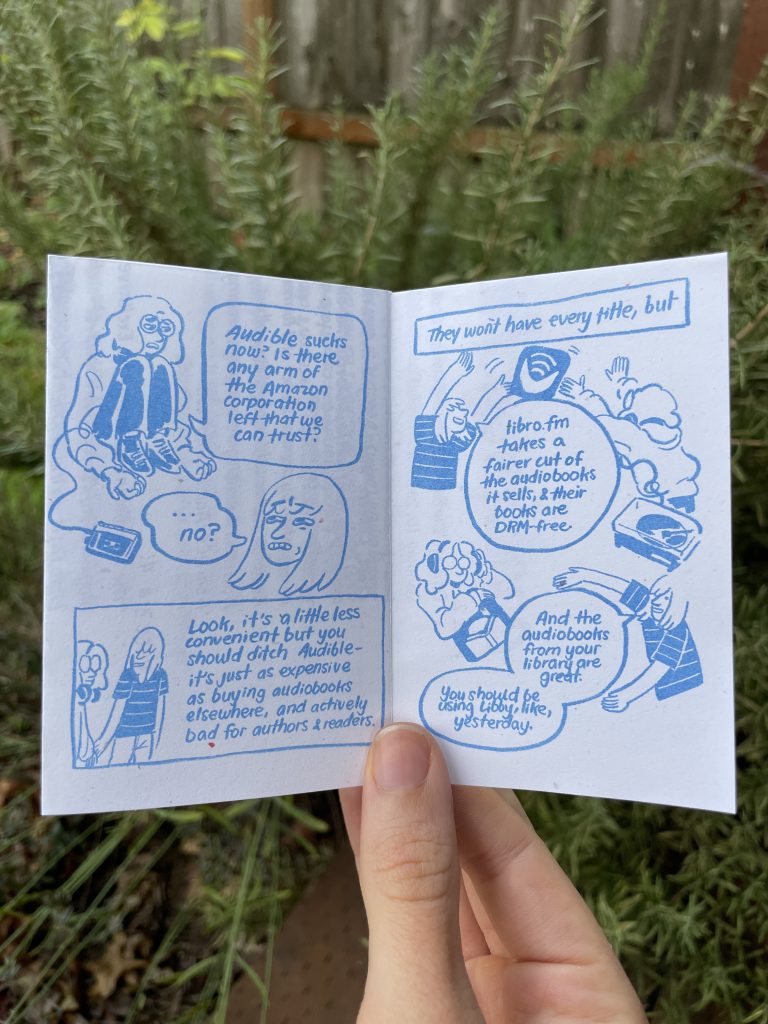 Audible sucks
now? Is there
any arm of
the Amazon
corporation
left that we
can trust?
...
no?
Look, it's a little less
convenient but you
should ditch Audible-
it's just as expensive
as buying audiobooks
elsewhere, and actively
bad for authors & readers.
They won't have every title, but
libro.fm
takes a
fairer cut of
the audiobooks
it sells, & their
books are
DRM-free.
And the
audiobooks
from your
library are
great.
You should be
using Libby, like,
yesterday.